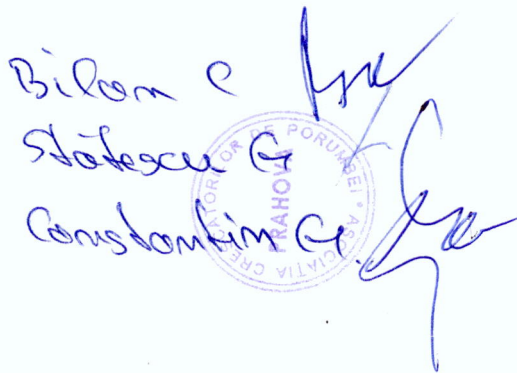 Bilan C
Stătescu G
Constantin G.
ASOCIATIA CRESCATORILOR DE PORUMBEI *
PRAHOVA